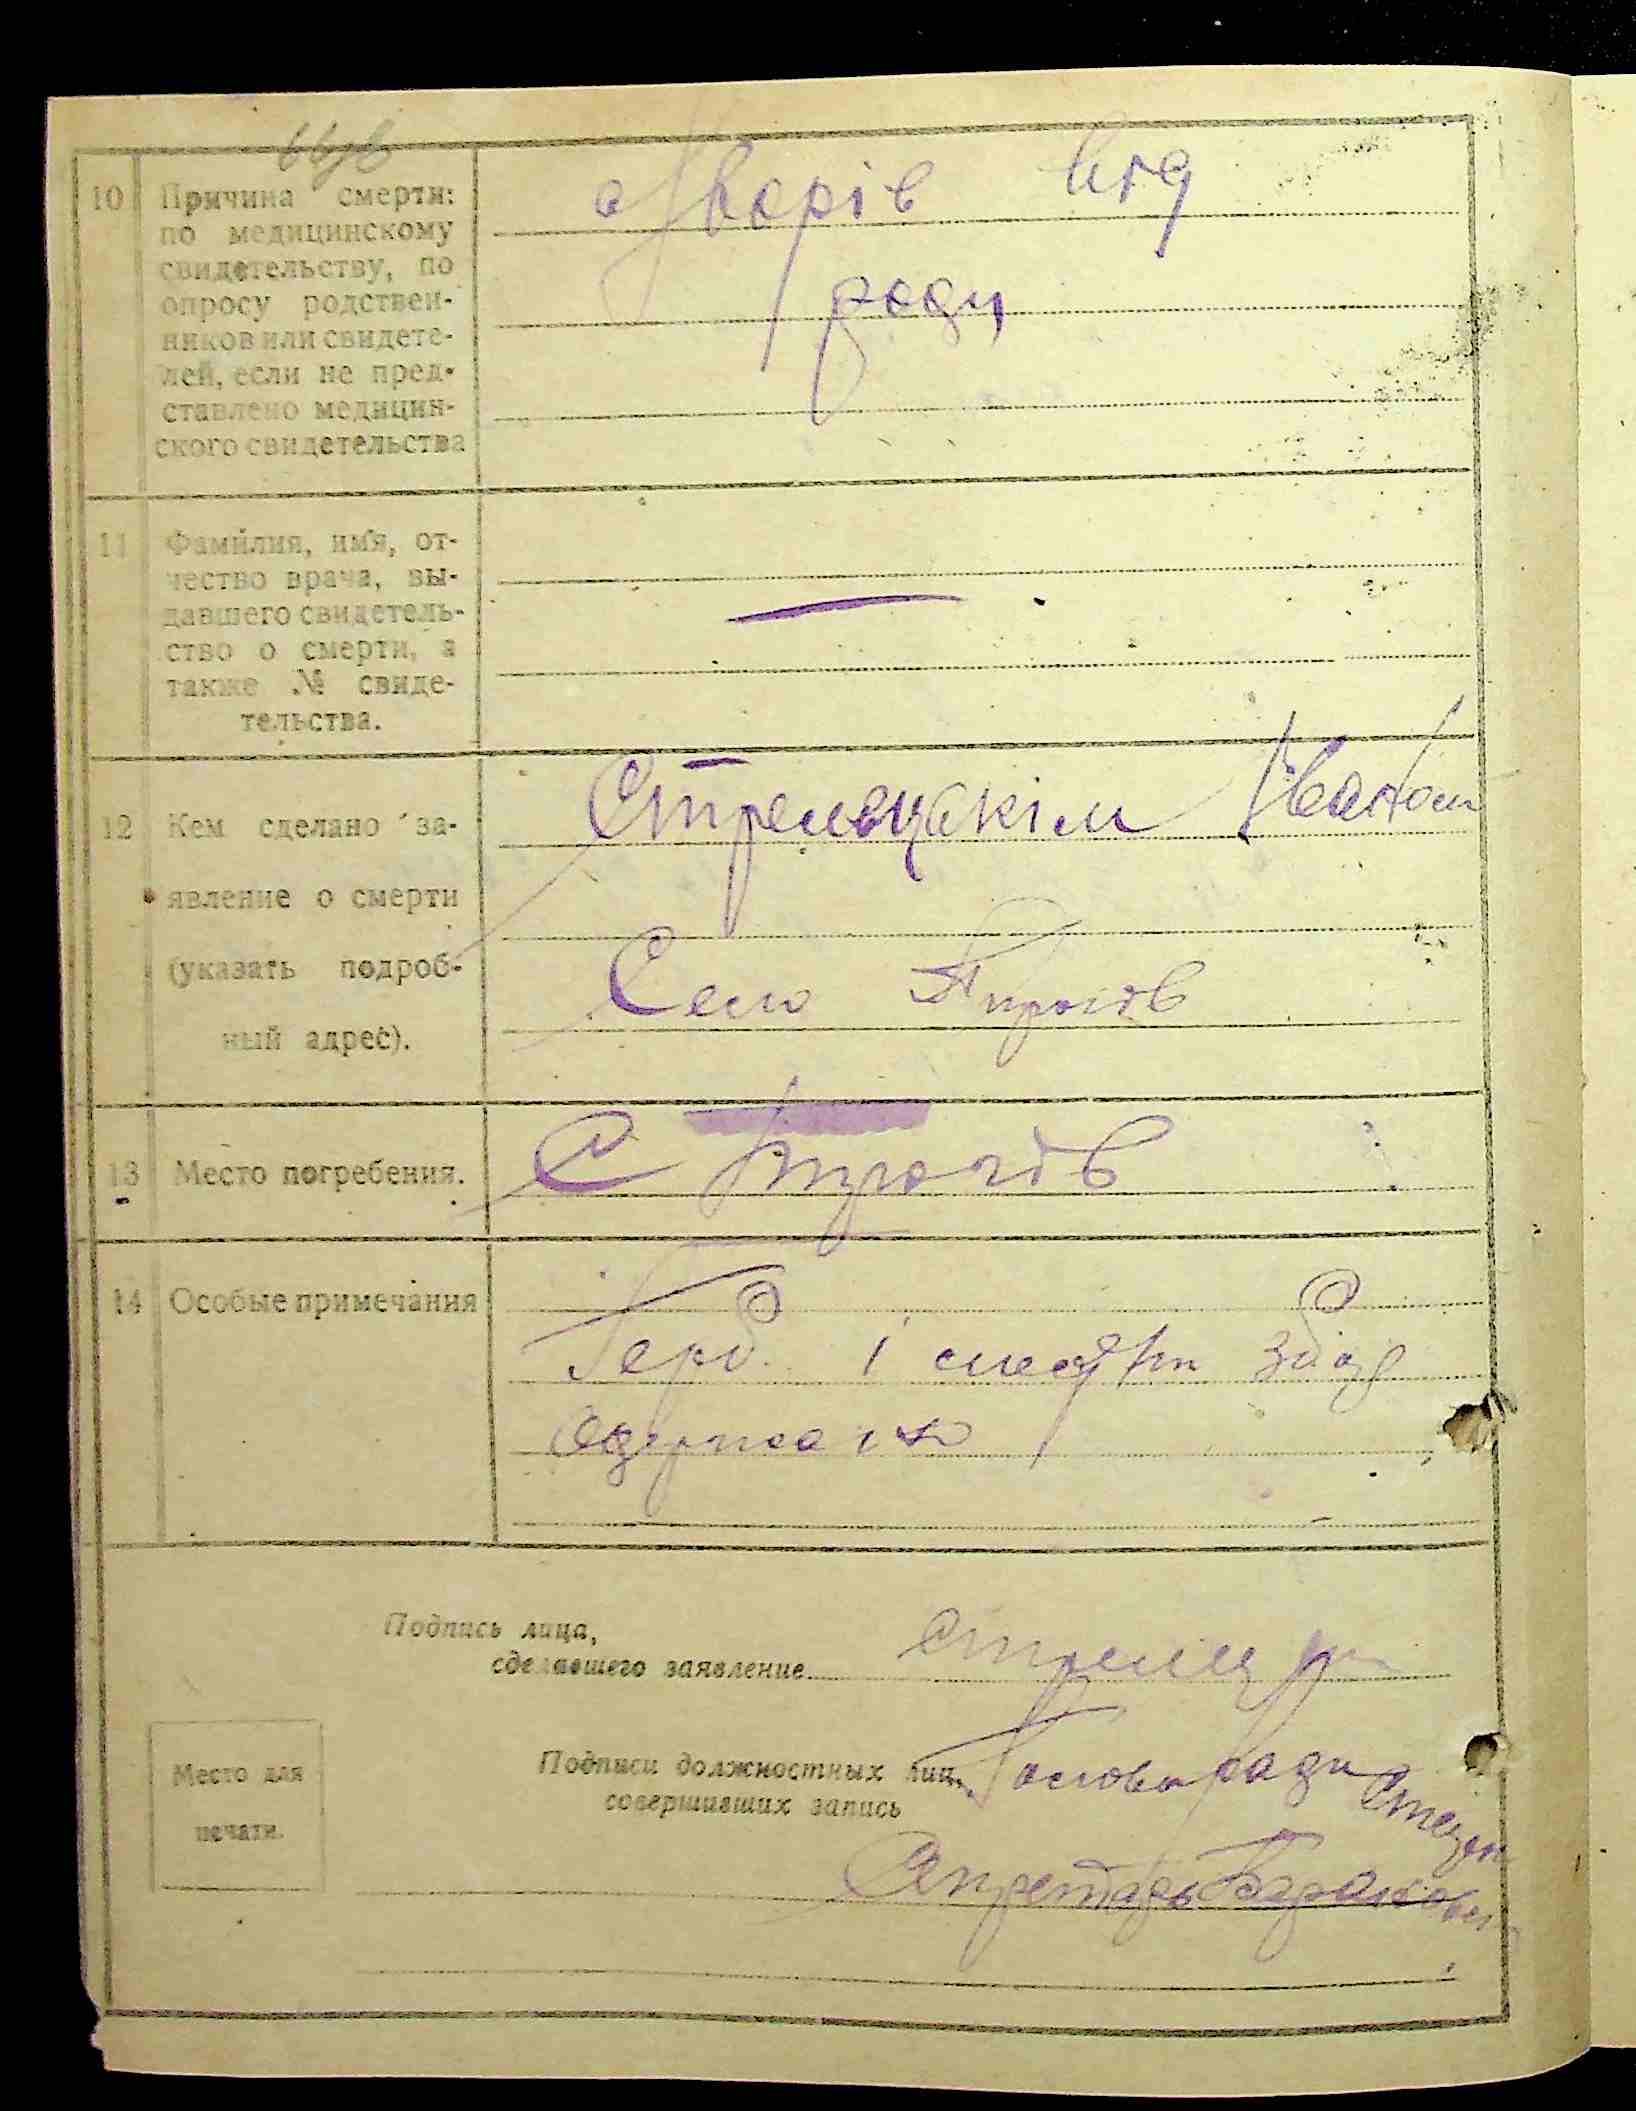 10 Причина смерти:
по медицинскому
свидетельству, по
опросу родствен-
ников или свидете-
лей, если не пред-
ставлено медицин-
ского свидетельства
хворів від
роди
11 Фамилия, имя, от-
чество врача, вы-
давшего свидетель-
ство о смерти, а
также № свиде-
тельства.
—
12 Кем сделано за-
явление о смерти
(указать подроб-
ный адрес).
Стрелецкім Іваном
Село Пирогів
13 Место погребения.
С Пирогів
14 Особые примечания
Герб. і
одержано
Подпись лица,
сделавшего заявление
Подписи должностных лиц,
совершивших запись
Голова Ради
Секретарь
Место для
печати.